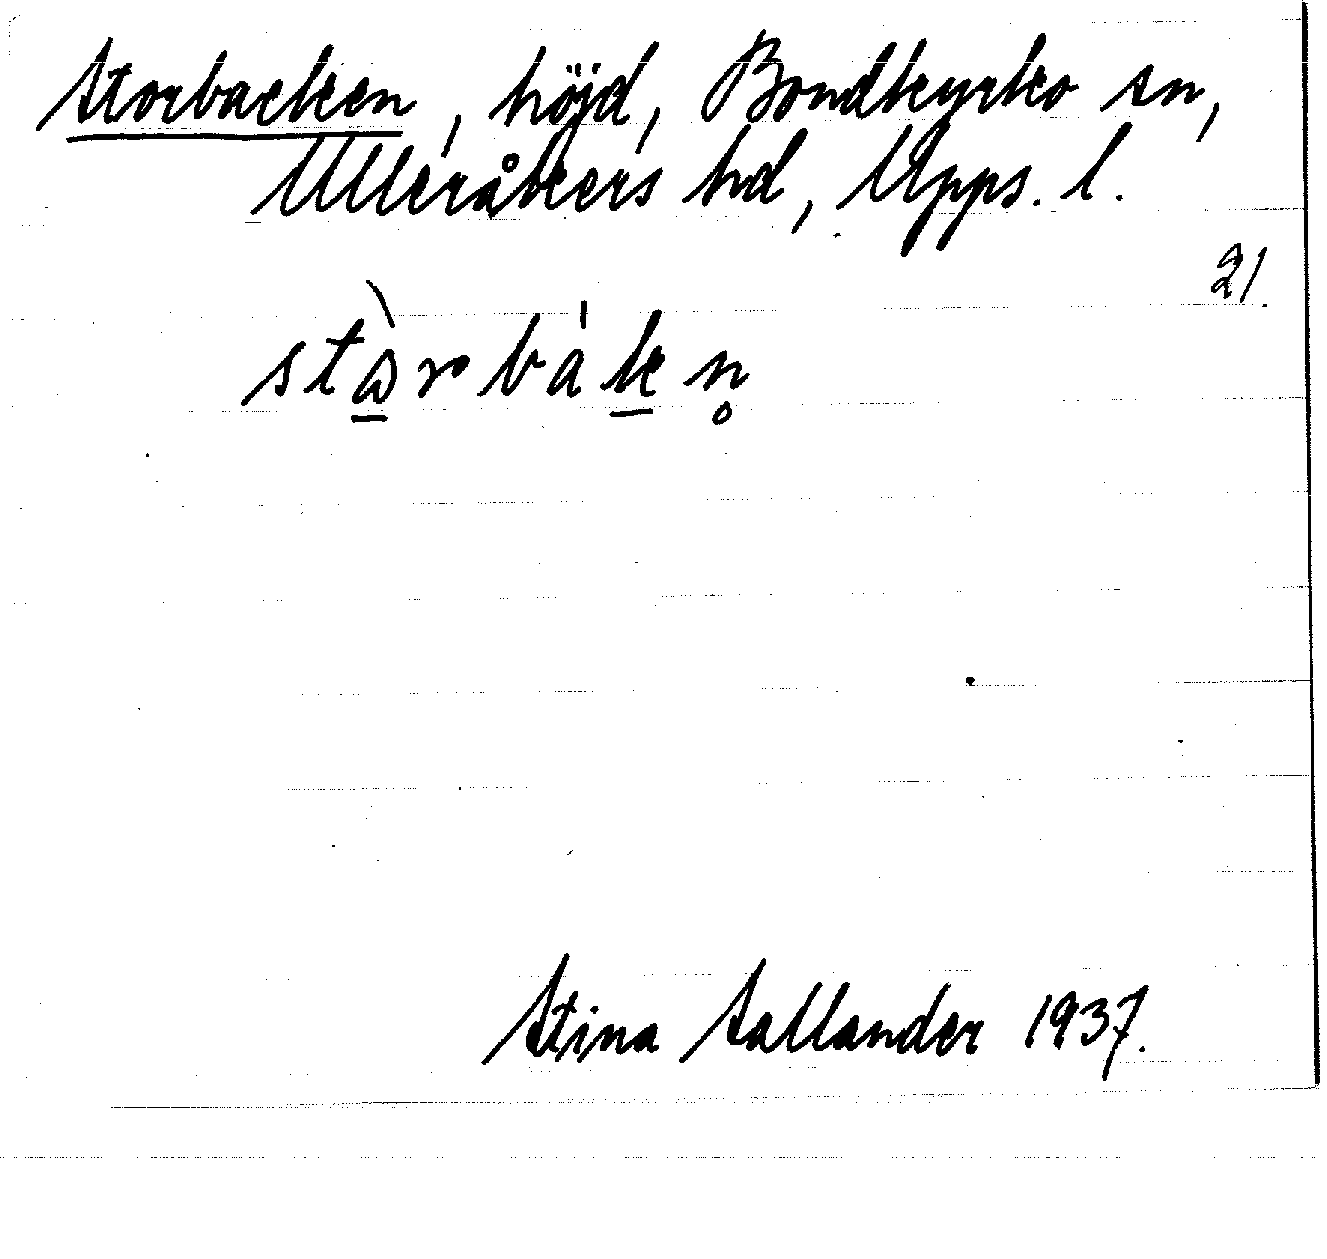 Storbacken, höjd, Bondkyrko sn,
Ulleråkers hd, Upps. l.
21.
stɷ̀rbákn̥
Stina Sallander 1937.